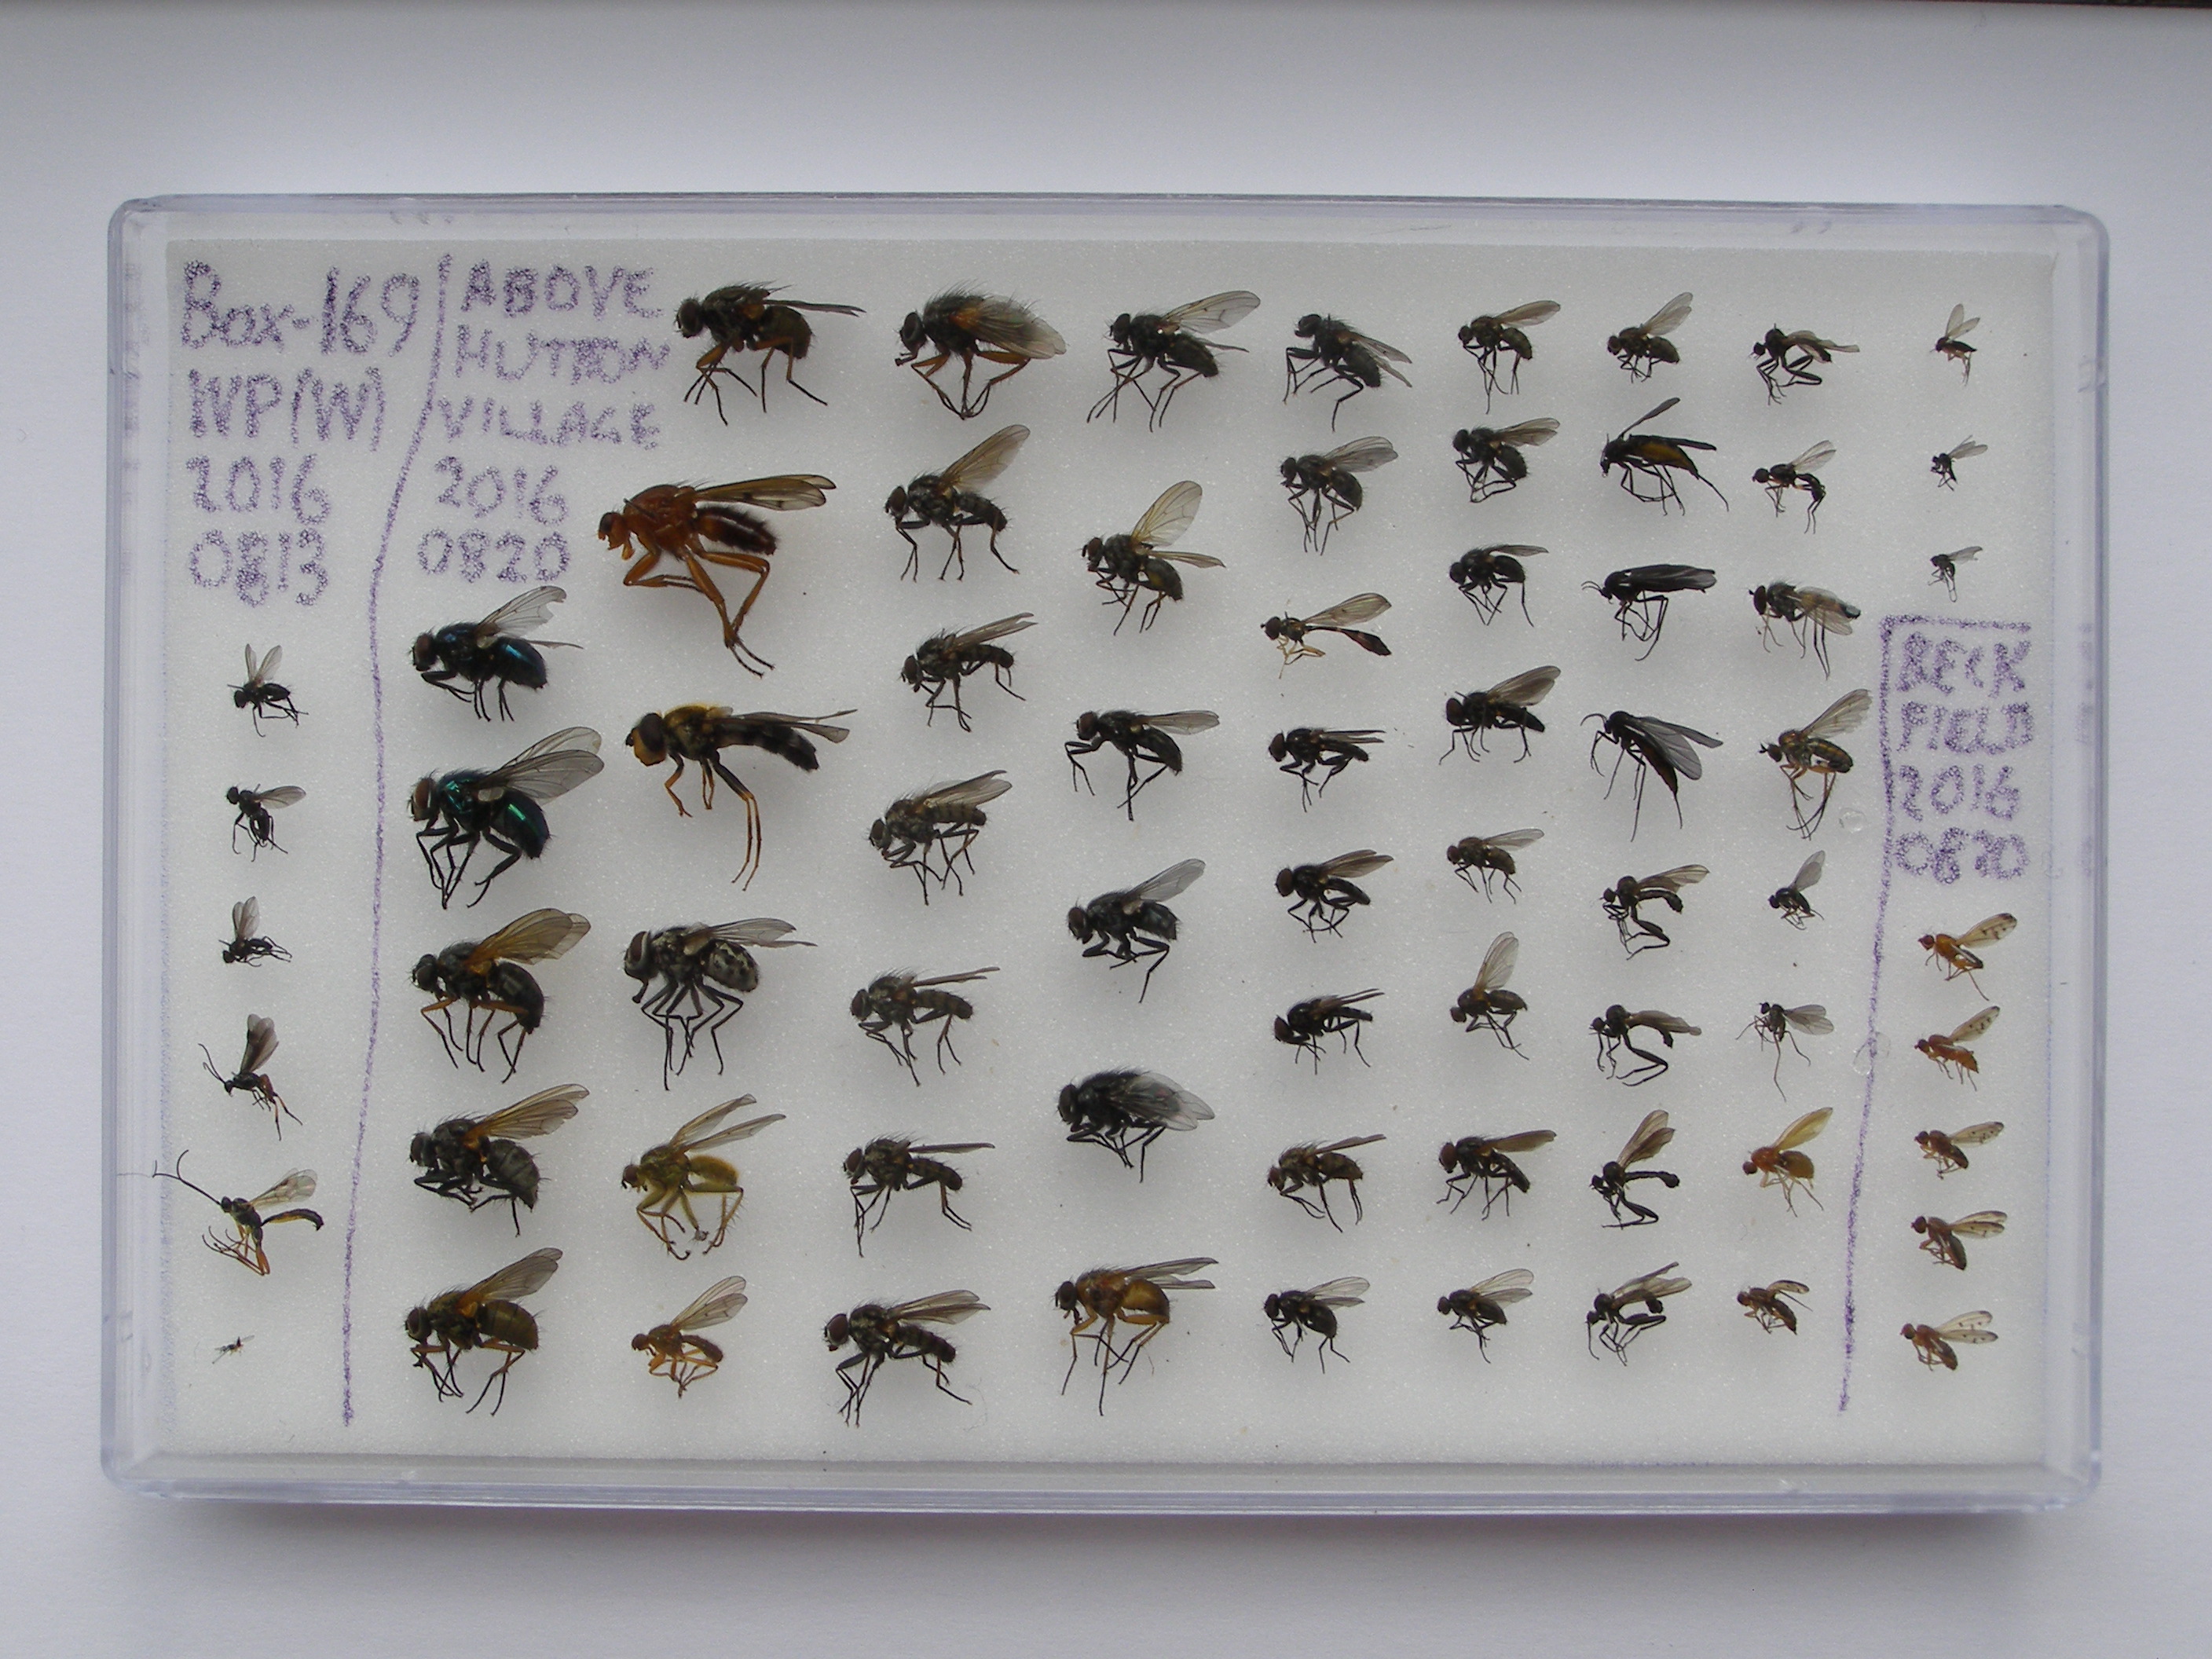 Box-169
WP(W)
2016
0813
ABOVE
HUTTON
VILLAGE
2016
0820
BECK
FIELD
2016
0820